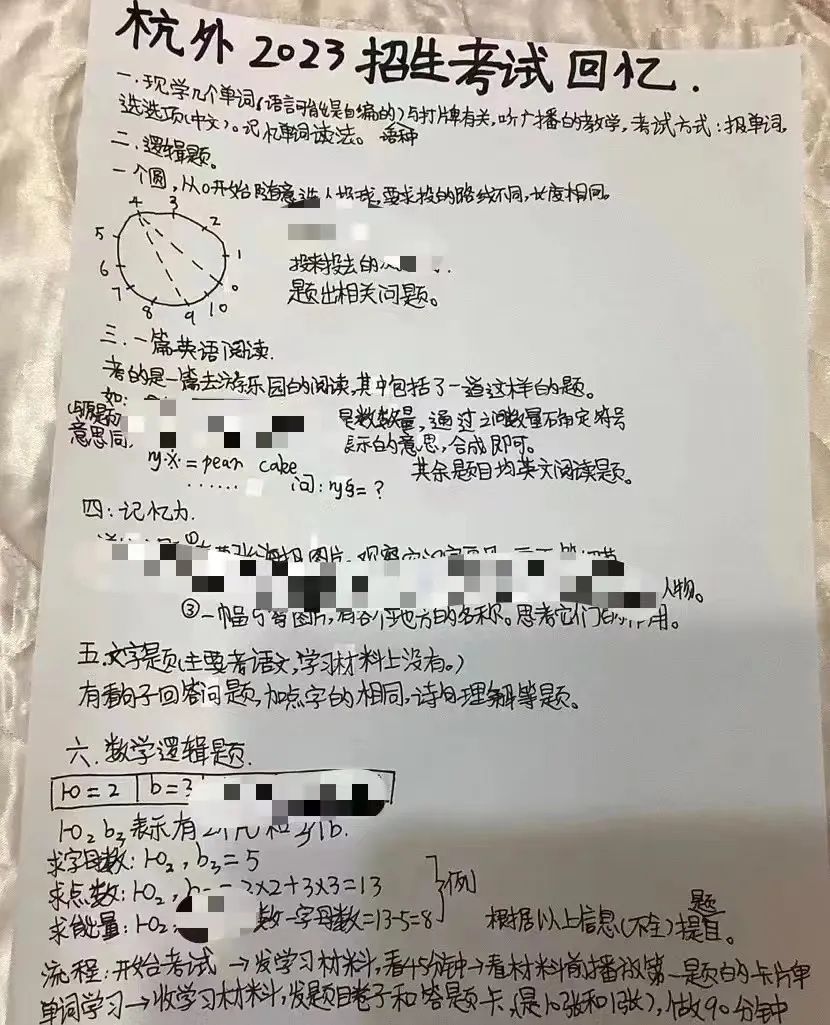 杭外2023招生考试回忆.
一.现学几个单词(语言可能是自编的)与打牌有关,听广播的教学,考试方式:报单词,
选选项(中文)。记忆单词读法。语种
二.逻辑题。
一个圆,从0开始随意选人投球,要求投的路线不同,长度相同。
4 3 2 1 0 10 9 8 7 6 5
投来投去的
题出相关问题。
三.一篇英语阅读.
考的是一篇去游乐园的阅读,其中包括了一道这样的题。
如:
与原题
意思同.
是数数量,通过之间数量不同定符号
表示的意思,合成即可。
= pean cake
其余题目均英文阅读题。
...... 问: = ?
四:记忆力.
图片,观察
人物。
③一幅 图片,有各个地方的名称。思考它们的作用。
五.文字题(主要考语文,学习材料上没有。)
有看句子回答问题,加点字的相同,诗句理解等题。
六.数学逻辑题.
=2 b=3
b₃表示有2个 和3个b.
求字母数: b₃=5
求点数: =2×2+3×3=13
求能量: 数-字母数=13-5=8
例
根据以上信息(不全)提题目。
流程:开始考试→发学习材料,看45分钟→看材料前播放第一题的卡片单
单词学习→收学习材料,发题目卷子和答题卡,(是10张和1张),做90分钟